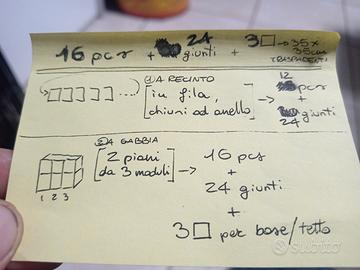 16 pcs + 24 giunti + 3□ → 35x35cm
TRASPARENTI
① A RECINTO
[in fila, chiusi ad anello] → 12 pcs + 24 giunti
② A GABBIA
[2 piani da 3 moduli] → 16 pcs
+
24 giunti
+
3□ per base/tetto
1 2 3
subito